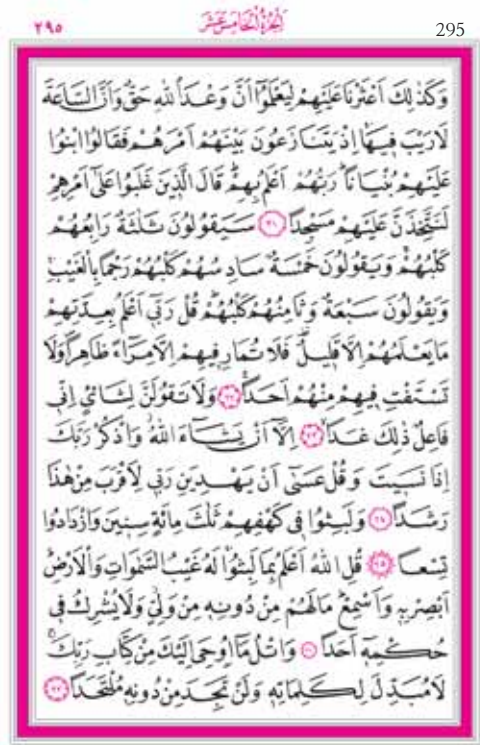 ٢٩٥ اَلْجُزْءُ الْخَامِسَ عَشَرَ 295
وَكَذٰلِكَ اَعْثَرْنَا عَلَيْهِمْ لِيَعْلَمُٓوا اَنَّ وَعْدَ اللّٰهِ حَقٌّ وَاَنَّ السَّاعَةَ
لَا رَيْبَ فٖيهَاۚ اِذْ يَتَنَازَعُونَ بَيْنَهُمْ اَمْرَهُمْ فَقَالُوا ابْنُوا
عَلَيْهِمْ بُنْيَانًاۜ رَبُّهُمْ اَعْلَمُ بِهِمْۜ قَالَ الَّذٖينَ غَلَبُوا عَلٰٓى اَمْرِهِمْ
لَنَتَّخِذَنَّ عَلَيْهِمْ مَسْجِدًا ﴿٢١﴾ سَيَقُولُونَ ثَلٰثَةٌ رَابِعُهُمْ
كَلْبُهُمْۚ وَيَقُولُونَ خَمْسَةٌ سَادِسُهُمْ كَلْبُهُمْ رَجْمًا بِالْغَيْبِۚ
وَيَقُولُونَ سَبْعَةٌ وَثَامِنُهُمْ كَلْبُهُمْۜ قُلْ رَبّٖٓي اَعْلَمُ بِعِدَّتِهِمْ
مَا يَعْلَمُهُمْ اِلَّا قَلٖيلٌ۠ فَلَا تُمَارِ فٖيهِمْ اِلَّا مِرَٓاءً ظَاهِرًا وَلَا
تَسْتَفْتِ فٖيهِمْ مِنْهُمْ اَحَدًا۟ ﴿٢٢﴾ وَلَا تَقُولَنَّ لِشَا۬يْءٍ اِنّٖي
فَاعِلٌ ذٰلِكَ غَدًاۙ ﴿٢٣﴾ اِلَّٓا اَنْ يَشَٓاءَ اللّٰهُۘ وَاذْكُرْ رَبَّكَ
اِذَا نَسٖيتَ وَقُلْ عَسٰٓى اَنْ يَهْدِيَنِ رَبّٖي لِاَقْرَبَ مِنْ هٰذَا
رَشَدًا ﴿٢٤﴾ وَلَبِثُوا فٖي كَهْفِهِمْ ثَلٰثَ مِائَةٍ سِنٖينَ وَازْدَادُوا
تِسْعًا ﴿٢٥﴾ قُلِ اللّٰهُ اَعْلَمُ بِمَا لَبِثُواۚ لَهُ غَيْبُ السَّمٰوَاتِ وَالْاَرْضِۜ
اَبْصِرْ بِهٖ وَاَسْمِعْۜ مَا لَهُمْ مِنْ دُونِهٖ مِنْ وَلِيٍّۘ وَلَا يُشْرِكُ فٖي
حُكْمِهٖٓ اَحَدًا ﴿٢٦﴾ وَاتْلُ مَٓا اُو۫حِيَ اِلَيْكَ مِنْ كِتَابِ رَبِّكَۚ
لَا مُبَدِّلَ لِكَلِمَاتِهٖۚ وَلَنْ تَجِدَ مِنْ دُونِهٖ مُلْتَحَدًا ﴿٢٧﴾